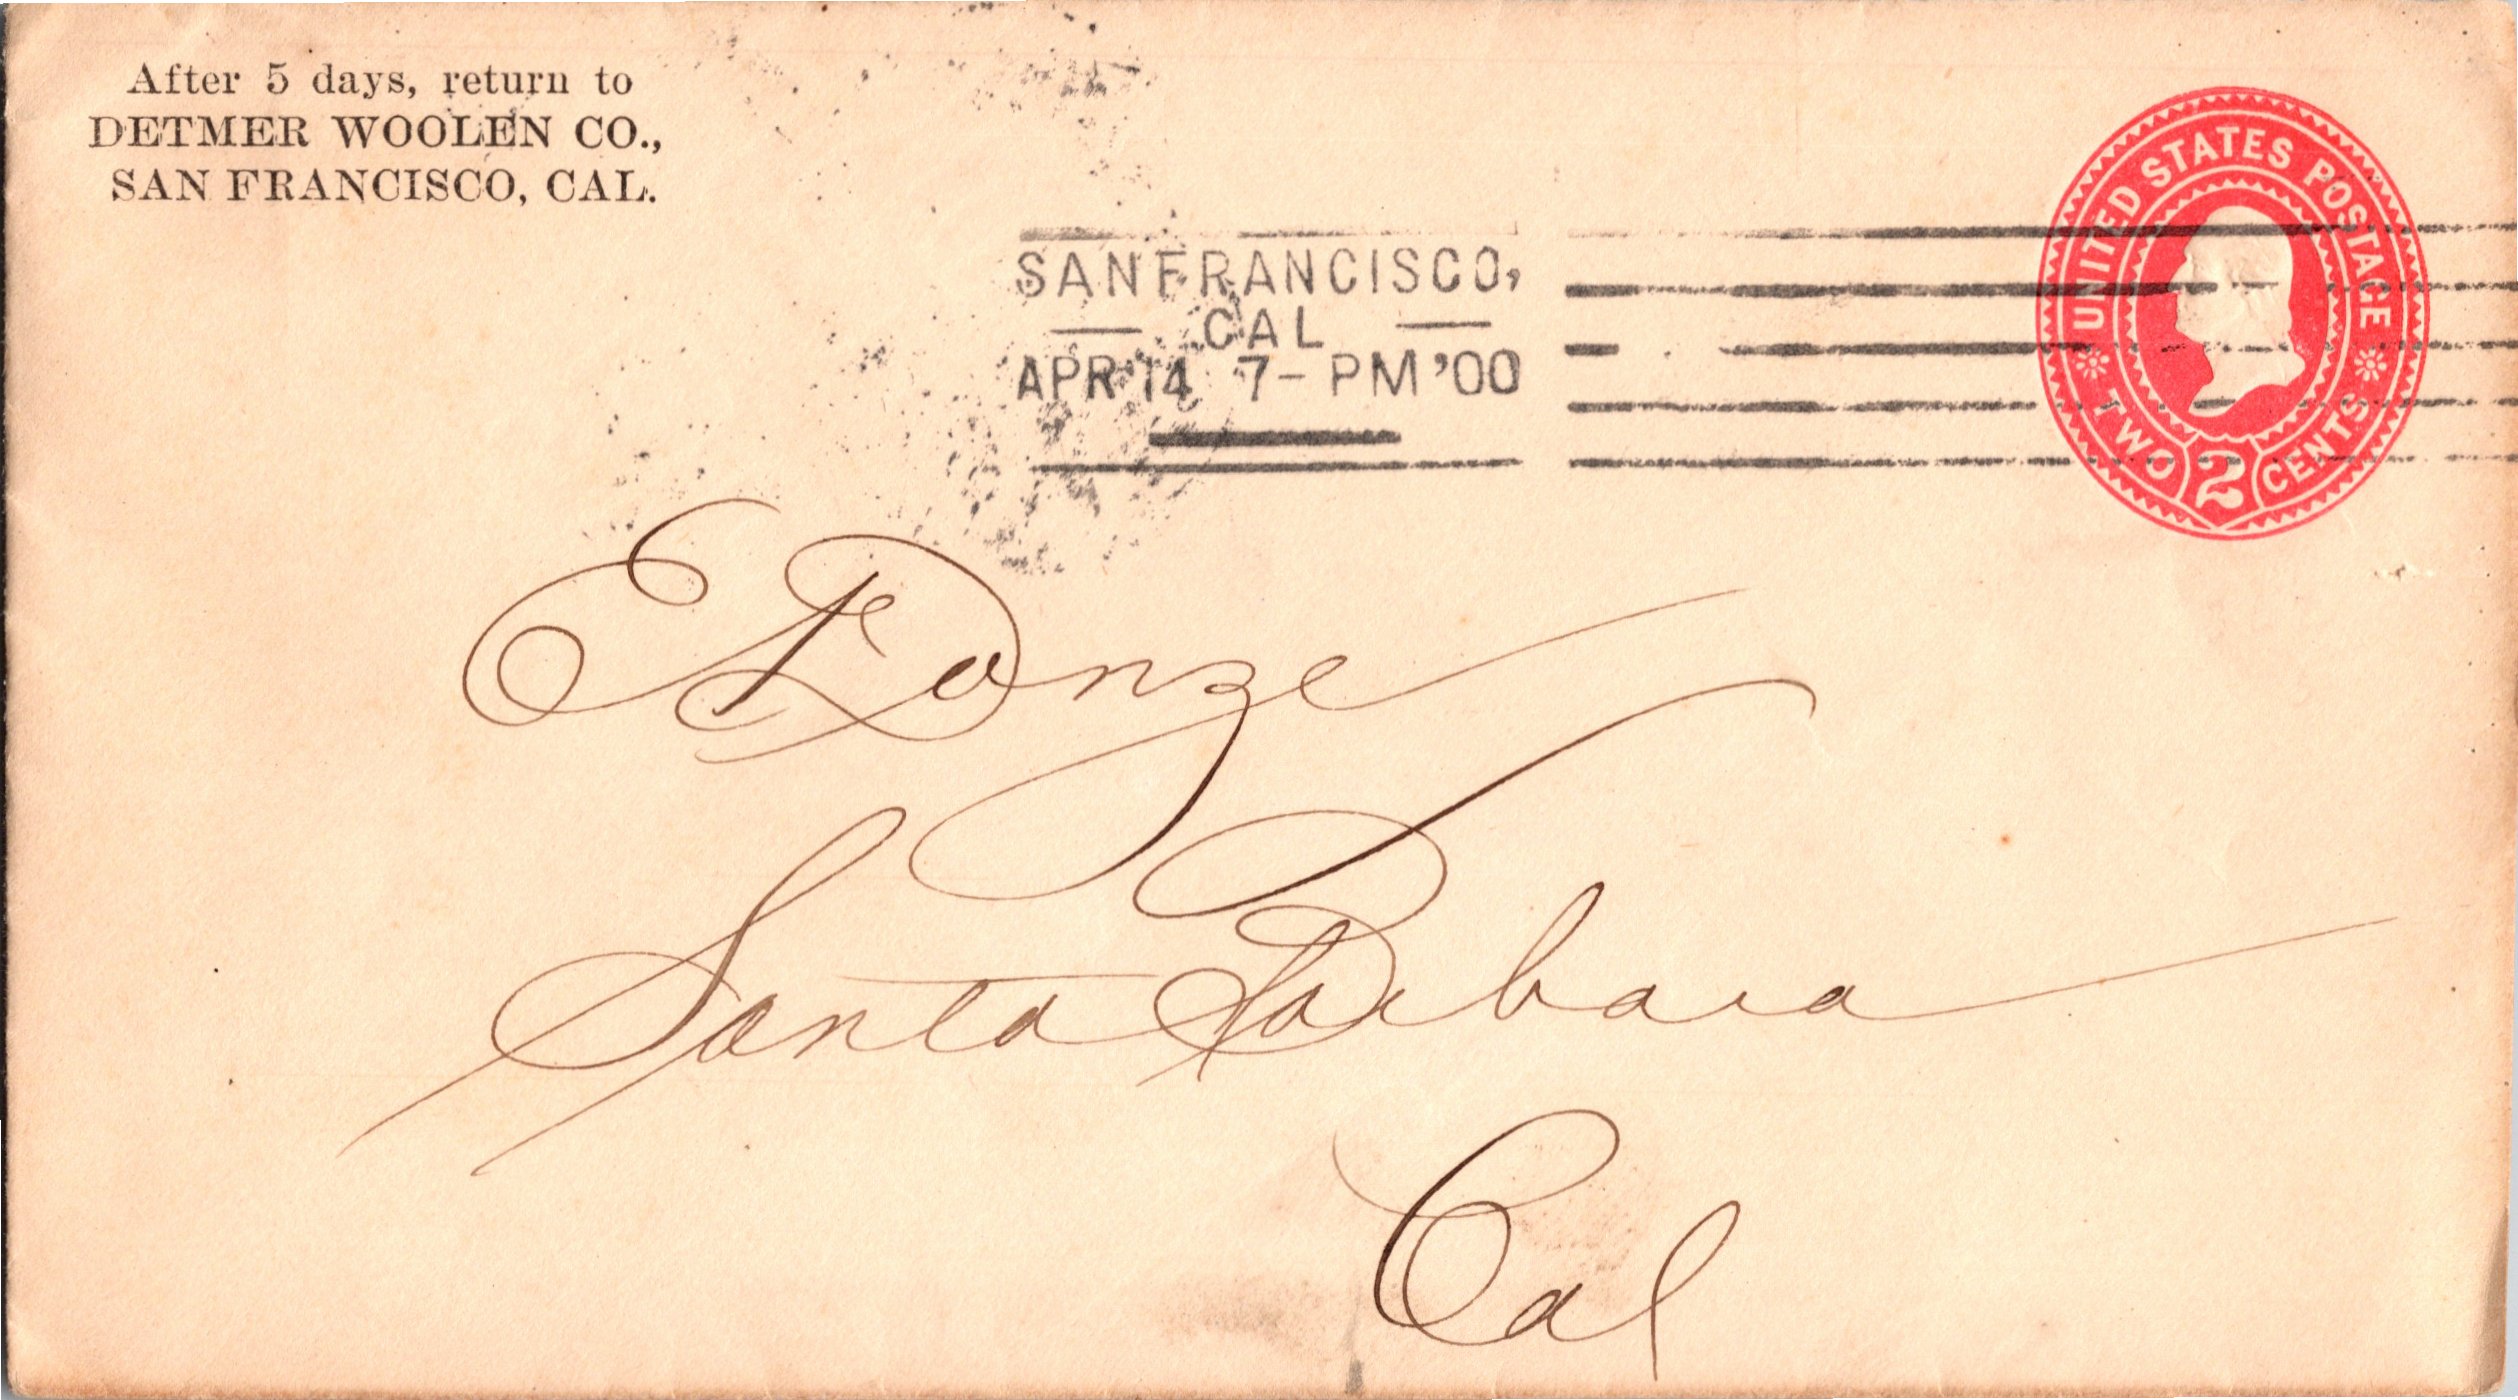 After 5 days, return to
DETMER WOOLEN CO.,
SAN FRANCISCO, CAL.
UNITED STATES POSTAGE
TWO 2 CENTS
SAN FRANCISCO,
CAL
APR 14 7-PM '00
E Donze
Santa Barbara
Cal